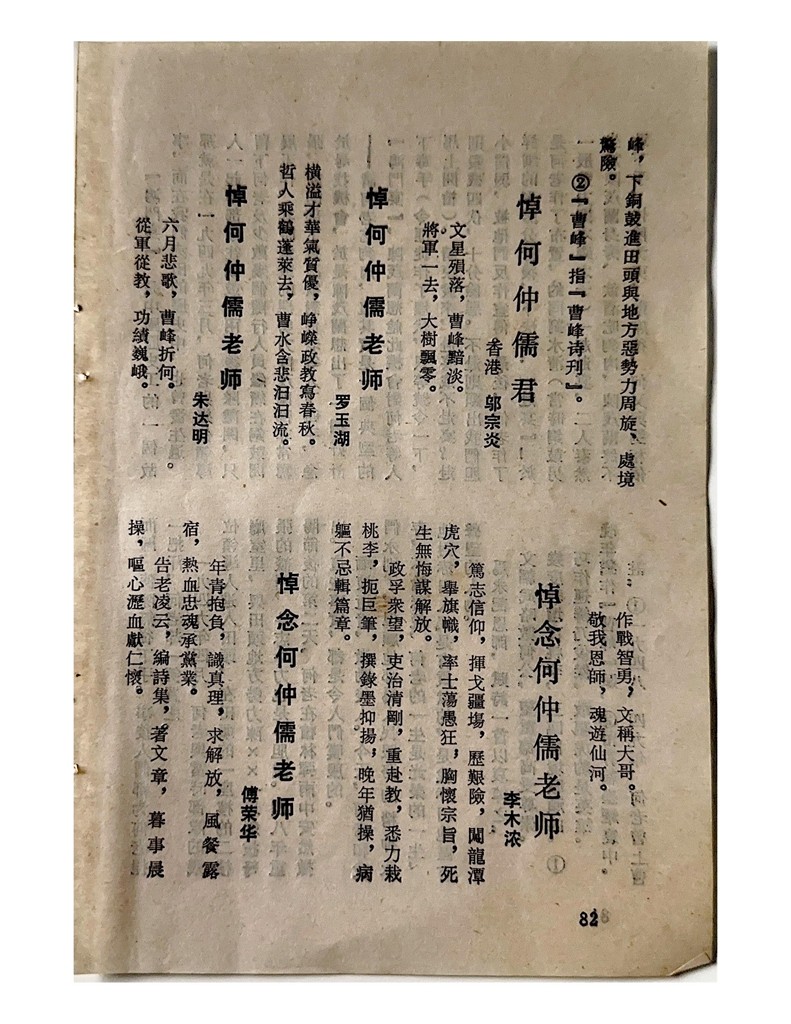 峰，下銅鼓進田頭與地方惡勢力周旋、處境
驚險。
②『曹峰』指『曹峰诗刊』。
悼何仲儒君
香港 邬宗炎
文星殞落，曹峰黯淡。
將軍一去，大樹飄零。
悼何仲儒老师
罗玉湖
橫溢才華氣質優，崢嶸政教寫春秋。
哲人乘鶴蓬萊去，曹水含悲汩汩流。
悼何仲儒老师
朱达明
六月悲歌，曹峰折何。
從軍從教，功績巍峨。
作戰智勇，文稱大哥。
敬我恩師，魂遊仙河。
悼念何仲儒老师①
李木浓
篤志信仰，揮戈疆塲，歷艱險，闖龍潭
虎穴，舉旗幟，率士蕩愚狂，胸懷宗旨，死
生無悔謀解放。
政孚衆望，吏治清剛，重赴教，悉力栽
桃李，扼巨筆，撰錄墨抑揚，晚年猶操，病
軀不忌輯篇章。
悼念何仲儒老师
傅荣华
年青抱負，識真理，求解放，風餐露
宿，熱血忠魂承黨業。
告老凌云，編詩集，著文章，暮事晨
操，嘔心瀝血獻仁懷。
82